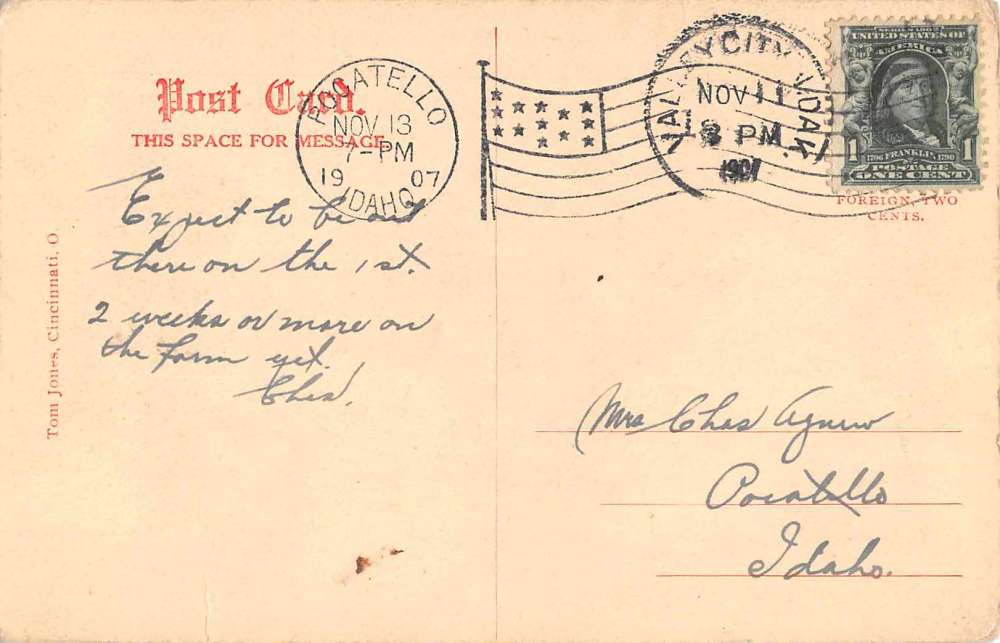 Post Card.
THIS SPACE FOR MESSAGE
POCATELLO
NOV 13
7-PM
19 07
IDAHO
VALLEY CITY, N. DAK.
NOV 11
8 PM
1907
SERIES 1902
UNITED STATES OF
AMERICA
1 1
1706 FRANKLIN 1790
POSTAGE
ONE CENT
FOREIGN, TWO
CENTS.
Expect to be out
there on the 1st.
2 weeks or more on
the farm yet.
Chas.
Tom Jones, Cincinnati, O.
Mrs Chas Agnew
Pocatello
Idaho.